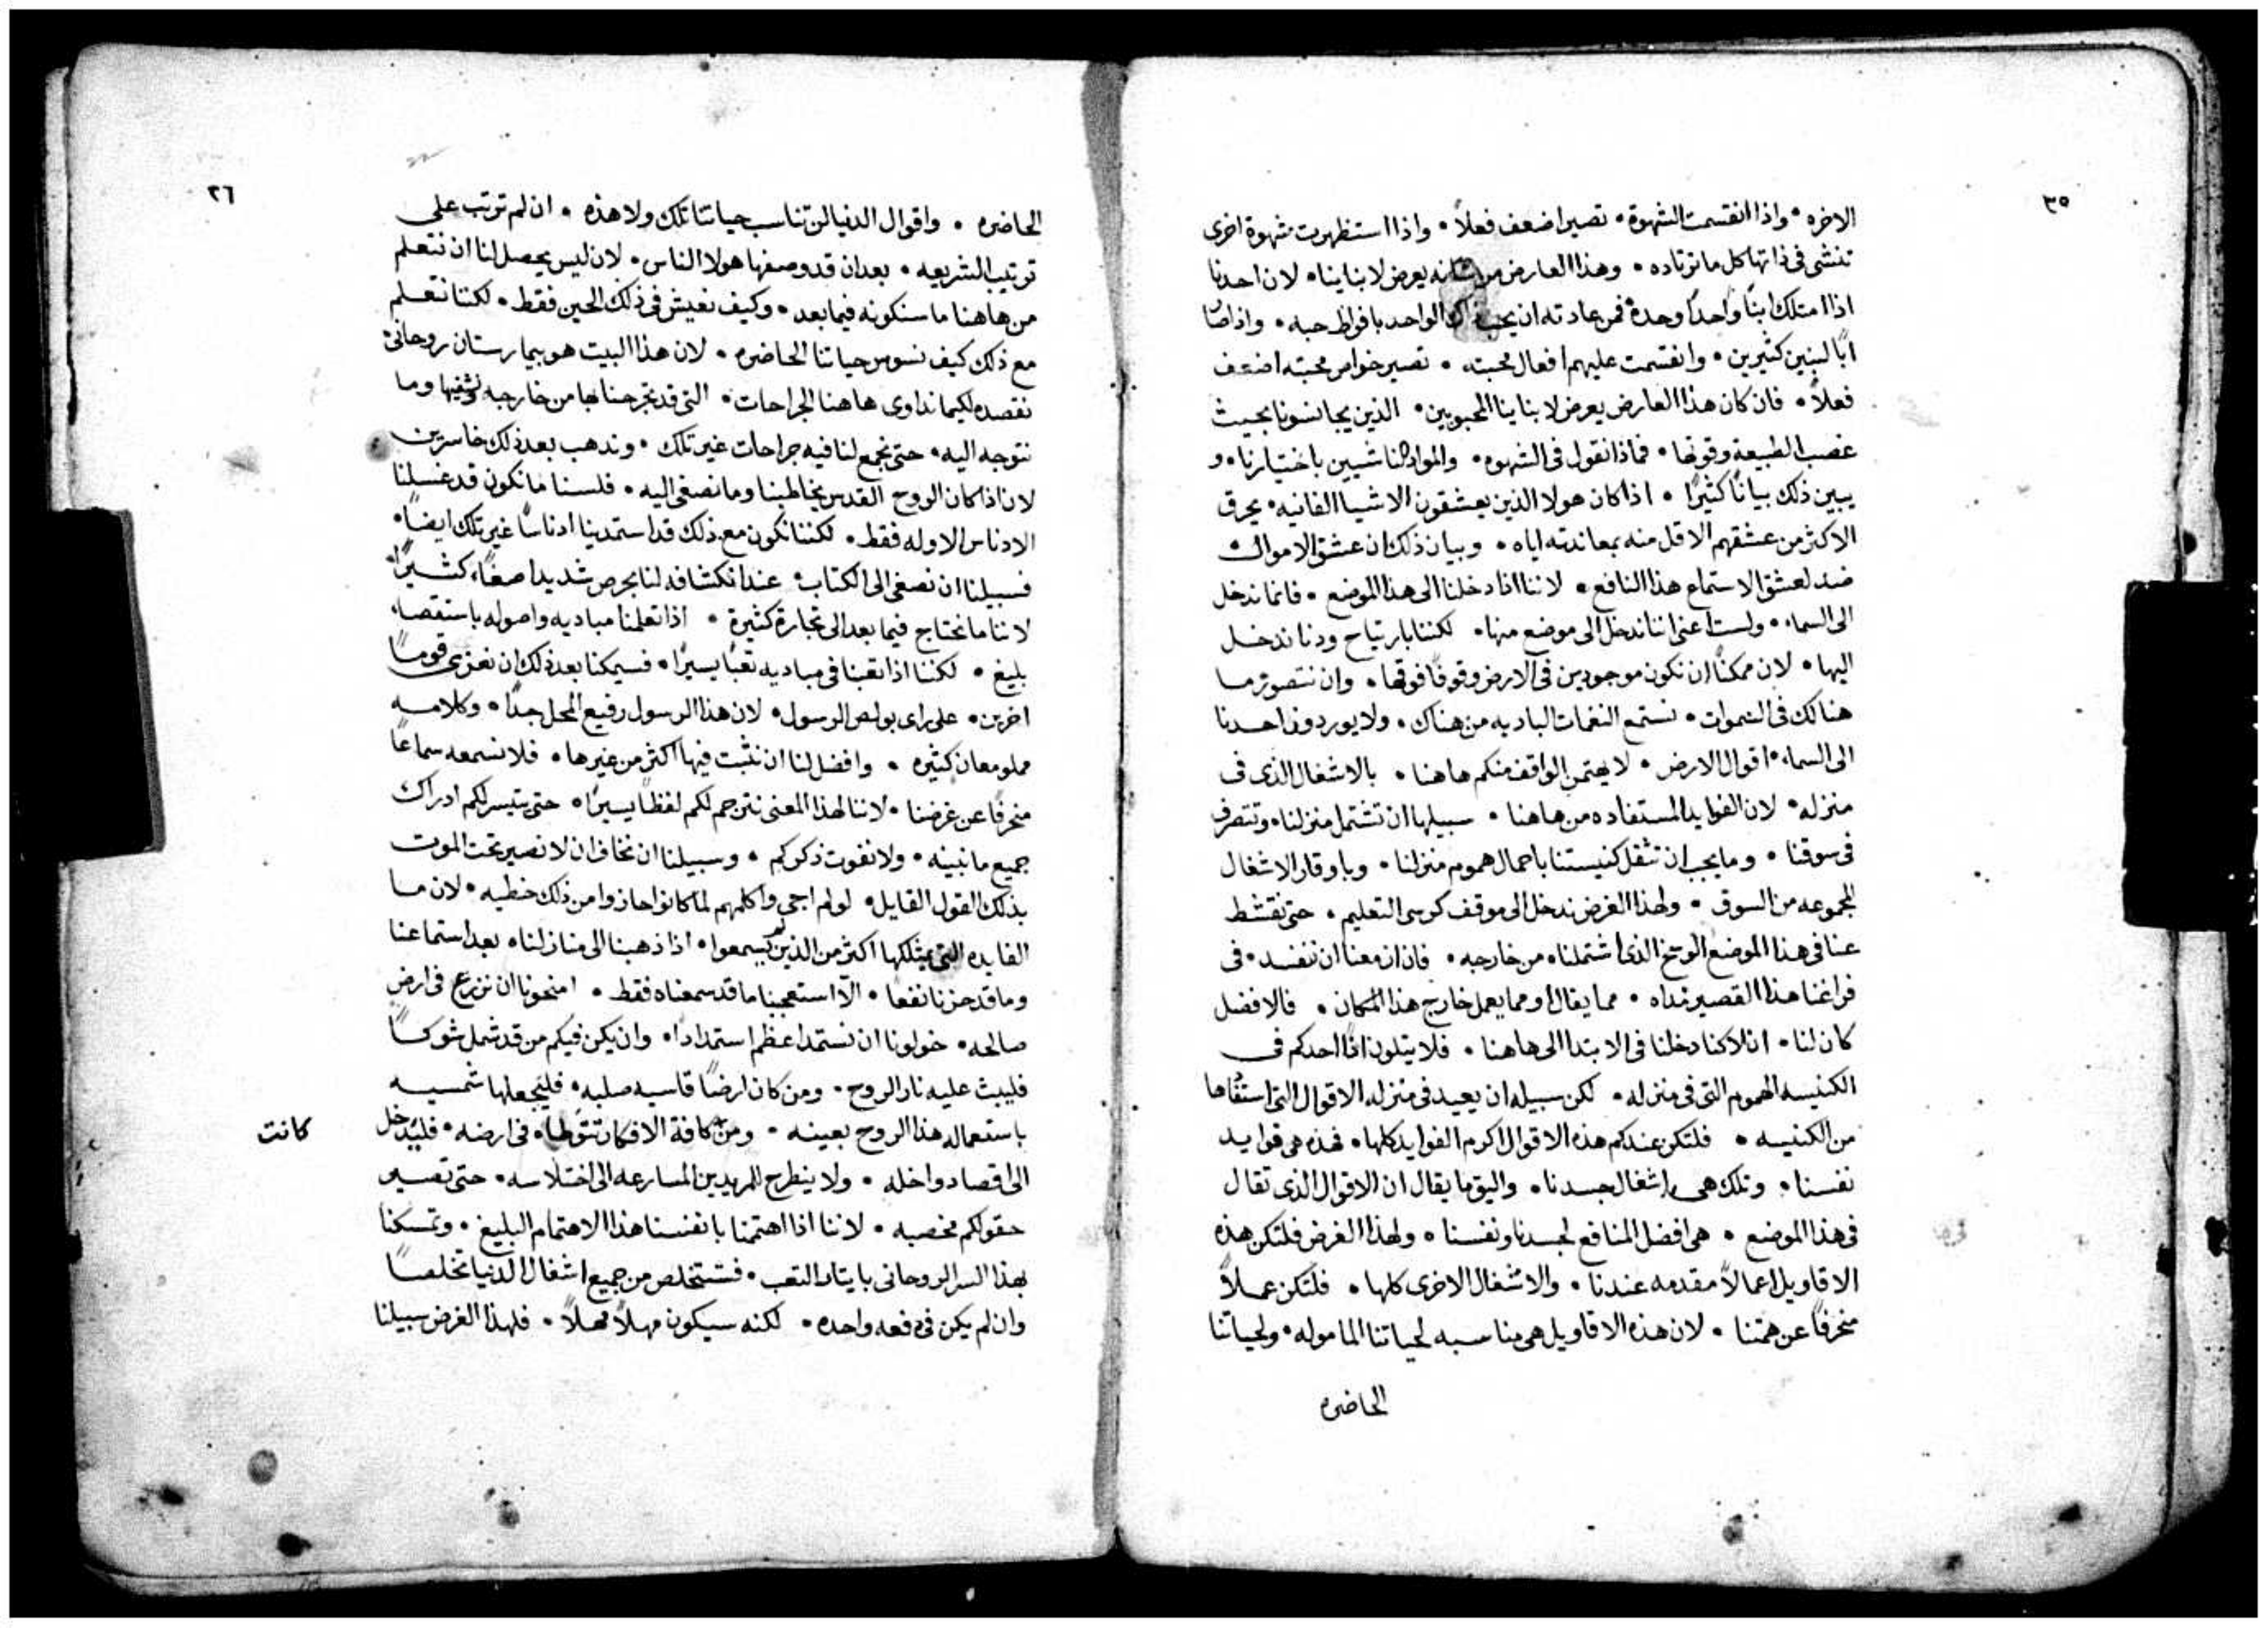 ٣٥
الاخره • واذا انقسمت الشهوة • تصير اضعف فعلاً • واذا استظهرت شهوة اخرى
تنشى فى ذاتها كل ما ترتاده • وهذا العارض من شانه يعرض لابناينا • لان احدنا
اذا امتلك ابنًا واحدًا وحده فمن عادته ان يحب ذاك الواحد بافراط حبه • واذا صار
ابًا لبنين كثيرين • وانقسمت عليهم افعال محبته • تصير خواص محبته اضعف
فعلاً • فان كان هذا العارض يعرض لابناينا المحبوبين • الذين يجانسونا بحيث
غصب الطبيعة وقوتها • فماذا نقول فى الشهوه • والمواد الناشيين باختيارنا • و
يبين ذلك بيانًا كثيرًا • اذا كان هولا الذين يعشقون الاشيا الفانيه • يحرق
الاكثر من عشقهم الاقل منه بمعاندته اياه • وبيان ذلك ان عشق الاموال
ضد لعشق الاستماع هذا النافع • لاننا اذا دخلنا الى هذا الموضع • فانما ندخل
الى السماء • ولست اعنى اننا ندخل الى موضع منها • لكننا بارتياح ودنا ندخل
اليها • لان ممكنًا ان نكون موجودين فى الارض وقوفًا فوقها • وان نتصور ما
هنالك فى السموات • نستمع النغمات الباديه من هناك • ولا يوردون احدنا
الى السماء • اقوال الارض • لا يهتمن الواقف منكم هاهنا • بالاشغال الذى فى
منزله • لان الفوايد المستفاده من هاهنا • سبيلها ان تشتمل منزلنا • وتتصرف
فى سوقنا • وما يجب ان تثقل كنيستنا باحمال هموم منزلنا • وباوقار الاشغال
المجموعه من السوق • ولهذا الغرض ندخل الى موقف كرسى التعليم • حتى نقشط
عنا فى هذا الموضع الوسخ الذى اشتملناه من خارجه • فان ازمعنا ان نفسد • فى
فراغنا هذا القصير مداه • مما يقال او مما يعمل خارج هذا المكان • فالافضل
كان لنا • ان لا كنا دخلنا فى الابتدا الى هاهنا • فلا يتلون اذًا احدكم فى
الكنيسه الهموم التى فى منزله • لكن سبيله ان يعيد فى منزله الاقوال التى استفادها
من الكنيسه • فلتكن عندكم هذه الاقوال اكرم الفوايد كلها • فهذه هى فوايد
نفسنا • وتلك هى اشغال جسدنا • واليق ما يقال ان الاقوال الذى تقال
فى هذا الموضع • هى افضل المنافع لجسدنا ونفسنا • ولهذا الغرض فلتكن هذه
الاقاويل اعمالاً مقدمه عندنا • والاشغال الاخرى كلها • فلتكن عملاً
منحرفًا عن همتنا • لان هذه الاقاويل هى مناسبه لحياتنا الماموله • ولحياتنا
الحاضره
٣٦
الحاضره • واقوال الدنيا لن تناسب حياتنا تلك ولا هذه • ان لم ترتب على
ترتيب الشريعه • بعد ان قد وصفها هولا الناس • لان ليس يحصل لنا ان نتعلم
من هاهنا ما سنكونه فيما بعد • وكيف نعيش فى ذلك الحين فقط • لكننا نتعلم
مع ذلك كيف نسوس حياتنا الحاضره • لان هذا البيت هو بيمارستان روحانى
نقصده لكيما نداوى هاهنا الجراحات • التى قد تجرحناها من خارجه ونشفيها وما
نتوجه اليه • حتى نجمع لنا فيه جراحات غير تلك • ونذهب بعد ذلك خاسرين
لان اذا كان الروح القدس يخاطبنا وما نصغى اليه • فلسنا ما نكون قد غسلنا
الادناس الاوله فقط • لكننا نكون مع ذلك قد استمدينا ادناسًا غير تلك ايضًا •
فسبيلنا ان نصغى الى الكتاب عند انكشافه لنا بحرص شديد اصغاءً كثيرًا
لاننا ما نحتاج فيما بعد الى تجارة كثيرة • اذا تعلمنا مباديه واصوله باستقصاء
بليغ • لكننا اذا تعبنا فى مباديه تعبًا يسيرًا • فسيمكنا بعد ذلك ان نعزى قومًا
اخرين • على راى بولص الرسول • لان هذا الرسول رفيع المحل جدًا • وكلامه
مملو معان كثيره • وافضل لنا ان نثبت فيها اكثر من غيرها • فلا نسمعه سماعًا
منحرفًا عن غرضنا • لاننا لهذا المعنى نترجم لكم لفظًا يسيرًا • حتى يتيسر لكم ادراك
جميع ما نبينه • ولا نفوت ذكركم • وسبيلنا ان نخاف ان لا نصير تحت الموت
بذلك القول القايل • لو لم اجى واكلمهم لما كانوا حازوا من ذلك خطيه • لان ما
الفايده التى يمتلكها اكثر من الذين لم يسمعوا • اذا ذهبنا الى منازلنا • بعد استماعنا
وما قد حزنا نفعًا • الا استعجبنا ما قد سمعناه فقط • امنحونا ان نزرع فى ارض
صالحه • خولونا ان نستمد اعظم استمدادًا • وان يكن فيكم من قد شمل شوكًا
فليبث عليه نار الروح • ومن كان ارضًا قاسيه صلبه • فليجعلها شمسيه
باستعماله هذا الروح بعينه • ومن كافة الافكار تتوطاه فى ارضه • فليدخل
الى اقصا دواخله • ولا ينطرح للمريدين المسارعه الى اختلاسه • حتى تصير
حقولكم مخصبه • لاننا اذا اهتممنا بانفسنا هذا الاهتمام البليغ • وتمسكنا
بهذا السر الروحانى بايثار التعب • فسنتخلص من جميع اشغال الدنيا تخلصًا
وان لم يكن فى دفعه واحده • لكنه سيكون مهلاً مهلاً • فلهذا الغرض سبيلنا
كانت